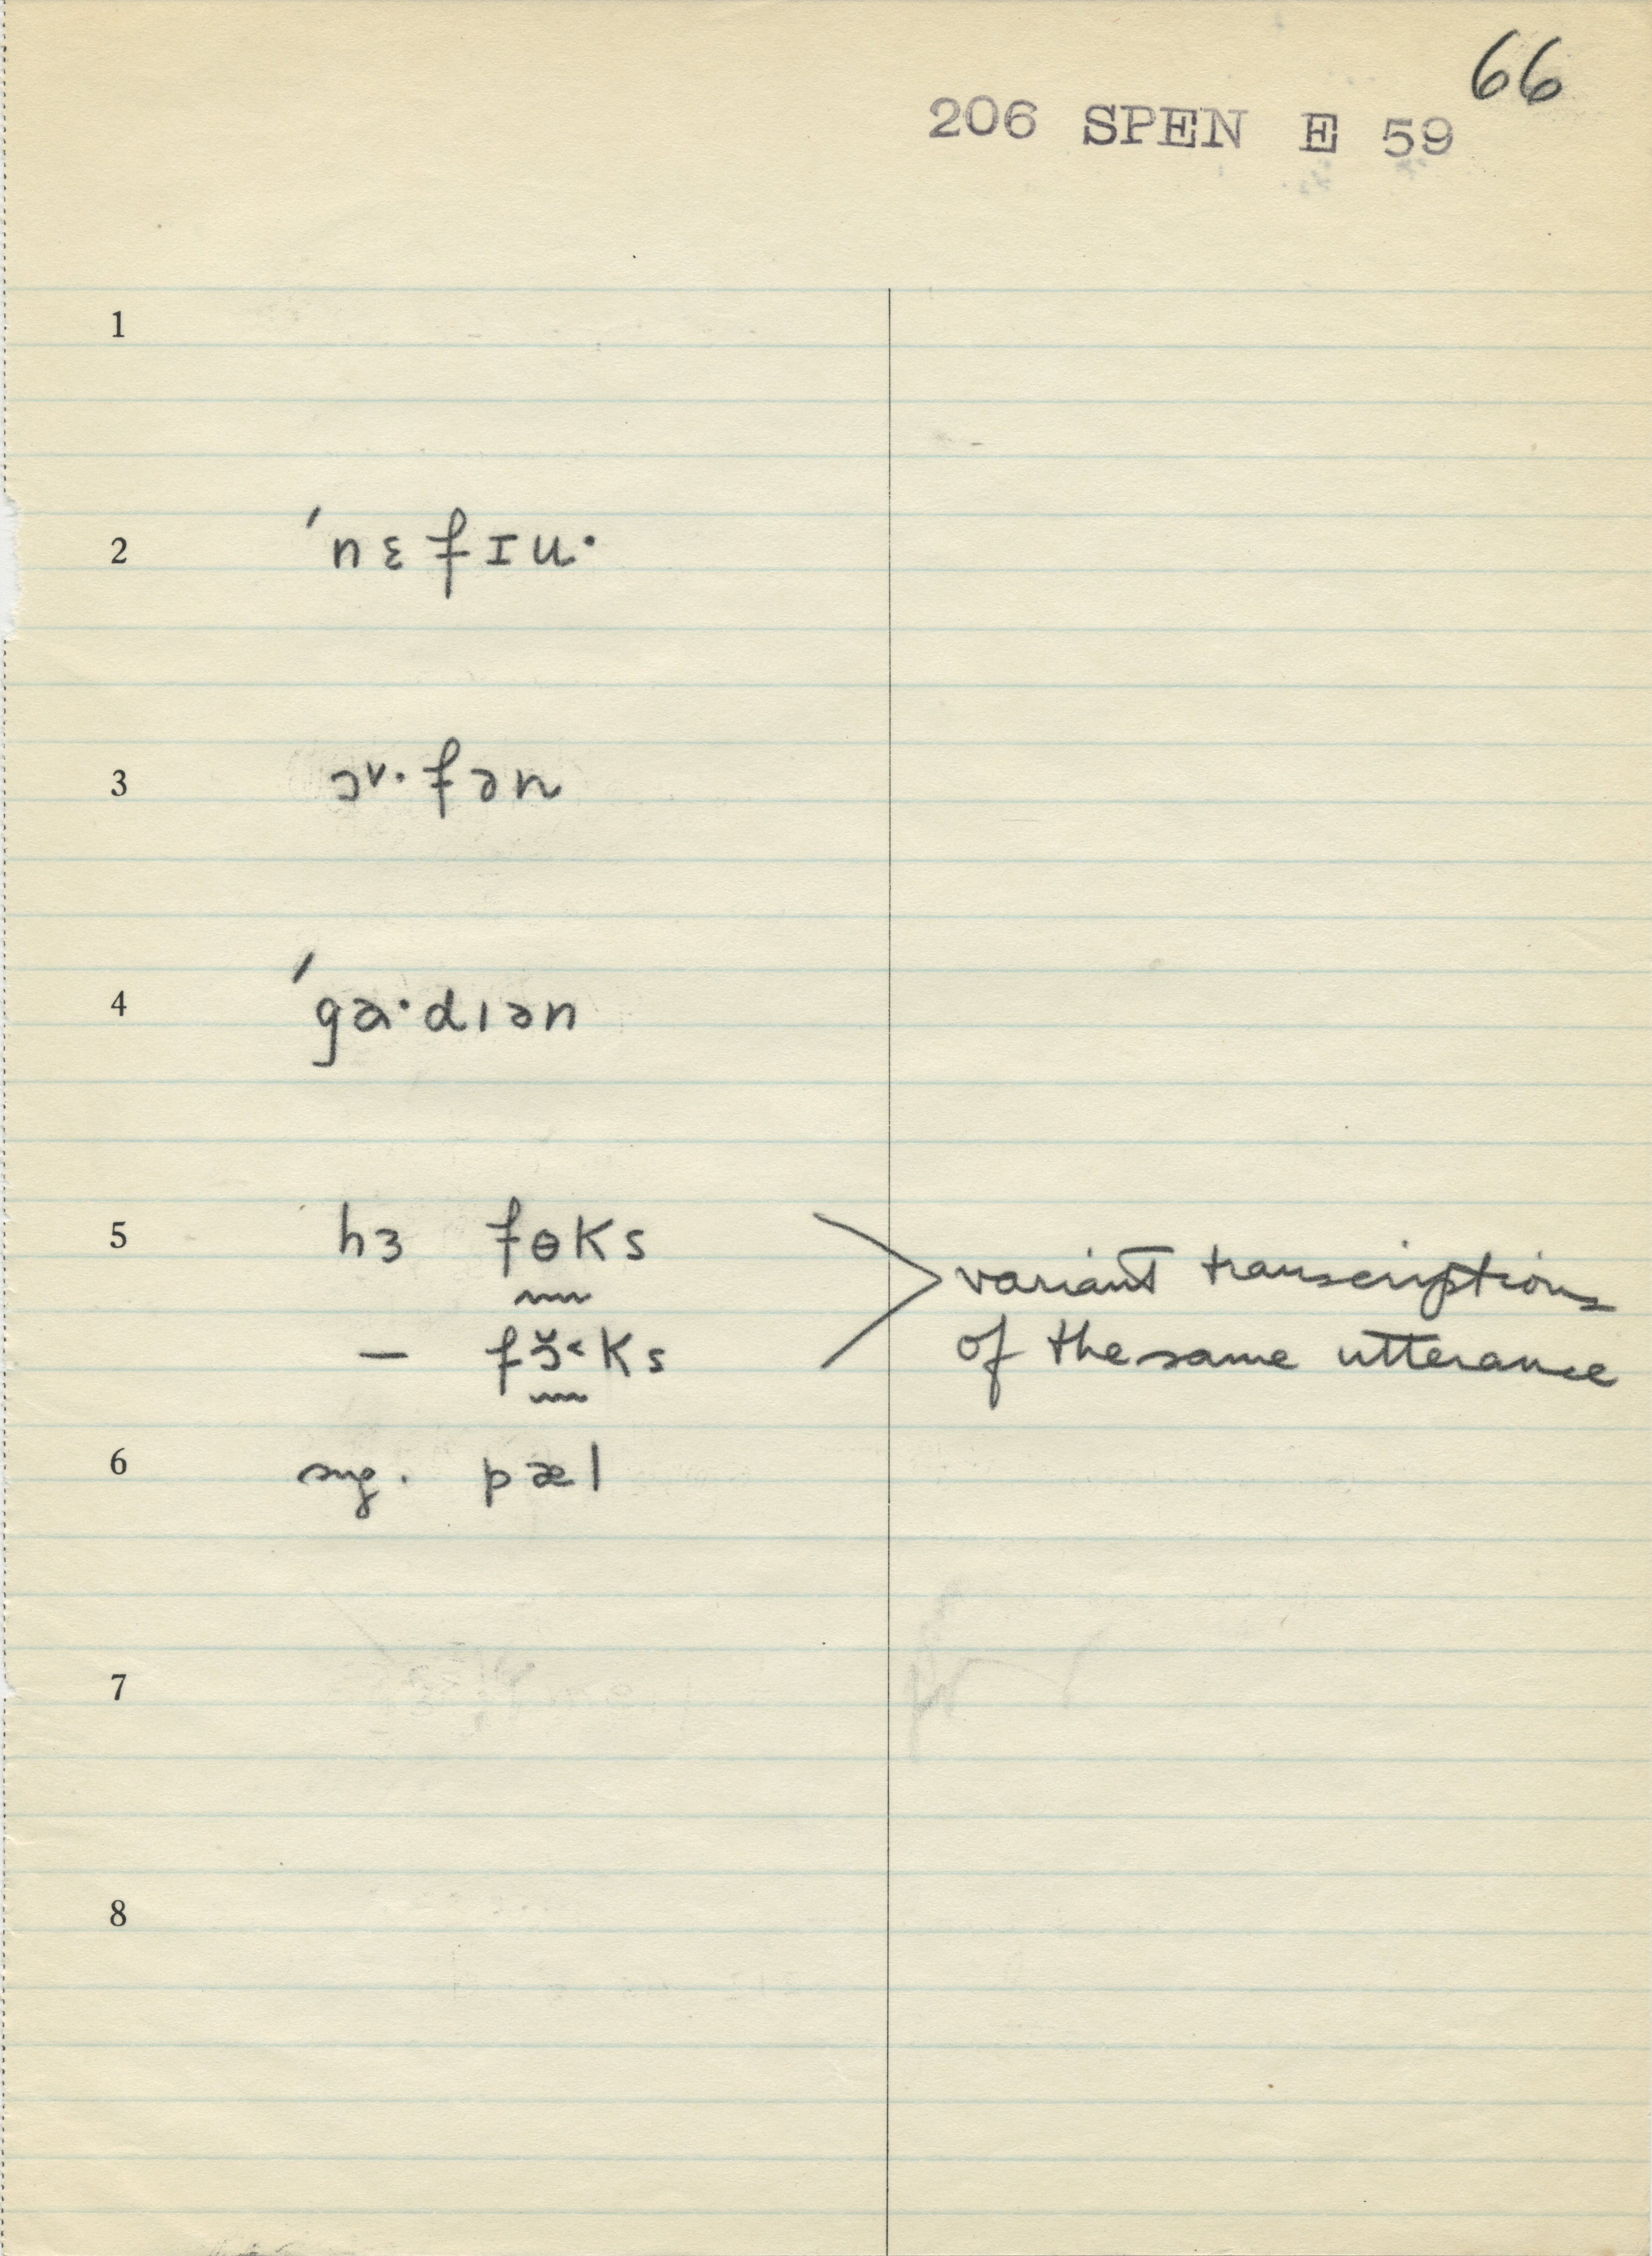 66
206 SPEN E 59
1
2 ˈnɛfɪu·
3 ɔᵛ·fən
4 ˈga·dɪən
5 hɜ fɵks
variant transcriptions
— fɔ̆˂ks
of the same utterance
6 sng. pæl
7
8